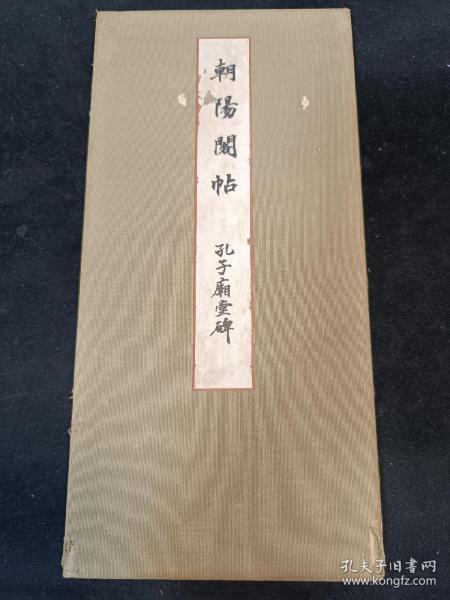 朝陽閣帖
孔子廟堂碑
孔夫子旧书网
www.kongfz.com